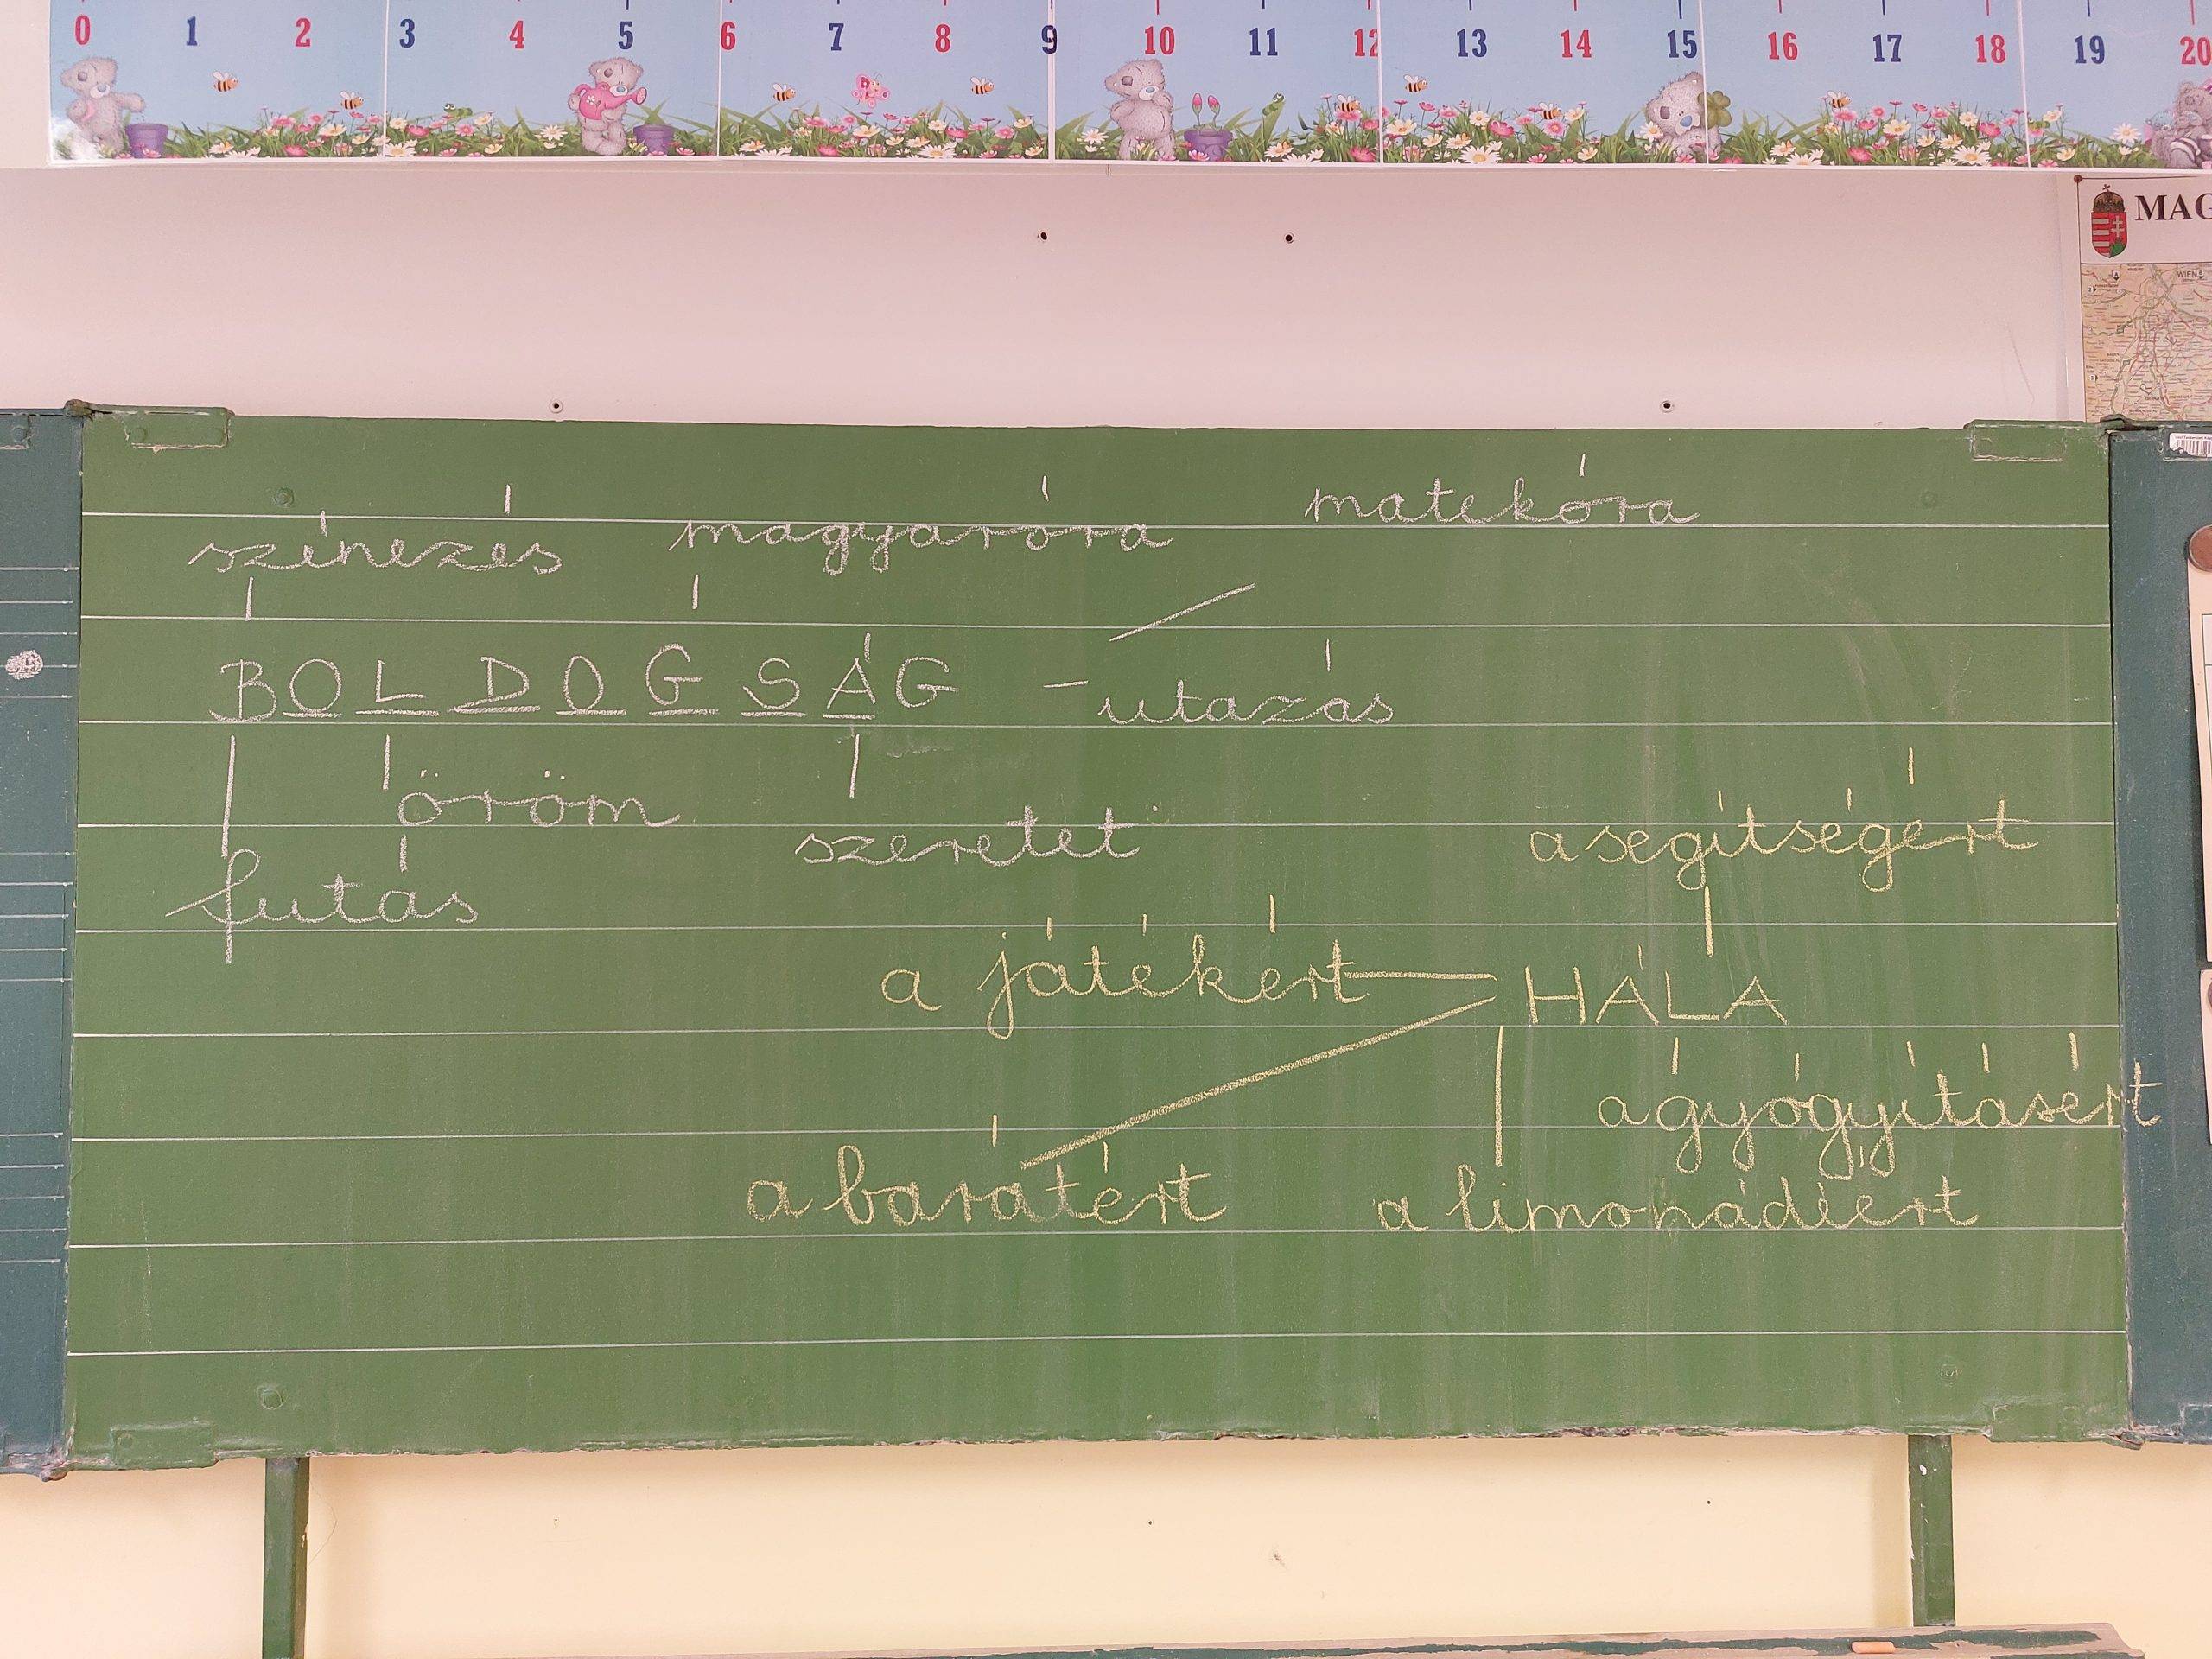 0 1 2 3 4 5 6 7 8 9 10 11 12 13 14 15 16 17 18 19 20
MAG
WIEN
matekóra
színezés magyaróra
BOLDOGSÁG - utazás
öröm
szeretet
a segítségért
futás
a játékért
HÁLA
a gyógyításért
a barátért
a limonádéért